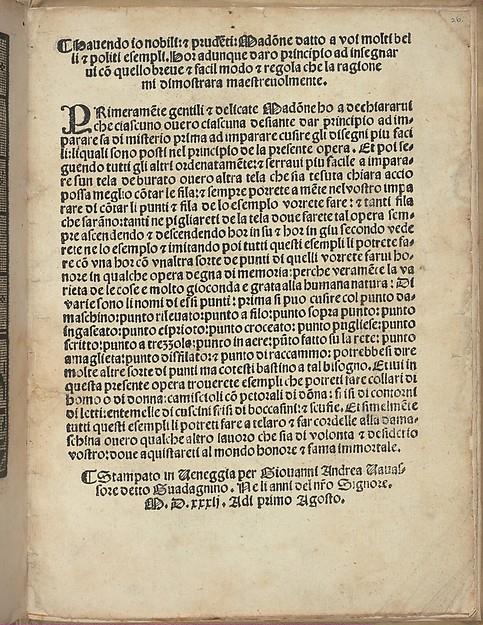 26.
Hauendo io nobili: ⁊ prudēti: Madōne datto a voi molti bel
li ⁊ politi esempli. Hor adunque daro principio ad insegnar
ui cō quello breue ⁊ facil modo ⁊ regola che la ragione
mi dimostrara maestreuolmente.
PRimeramēte gentili ⁊ delicate Madōne ho a dechiararui
che ciascuno ouero ciascuna desiante dar principio ad im-
parare fa di misterio prima ad imparare cusire gli disegni piu faci
li: liquali sono posti nel principio de la presente opera. Et poi se-
guendo tutti gli altri ordenatamēte: ⁊ serraui piu facile a impara-
re sun tela de burato ouero altra tela che sia tesuta chiara accio
possa meglio cōtar le fila: ⁊ sempre porrete a mēte nel vostro impa
rare di cōtar li punti ⁊ fila de lo esemplo vorrete fare: ⁊ tanti fila
che sarāno: tanti ne pigliareti de la tela doue farete tal opera sem-
pre ascendendo ⁊ descendendo hor in su ⁊ hor in giu secondo vede
rete ne lo esemplo ⁊ imitando poi tutti questi esempli li potrete fa-
re cō vna hor cō vnaltra sorte de punti di quelli vorrete farui ho-
nore in qualche opera degna di memoria: perche veramēte la va
rieta de le cose e molto gioconda e grata alla humana natura: Di
varie sono li nomi di essi punti: prima si puo cusire col punto da-
maschino: punto rileuato: punto a filo: punto sopra punto: punto
ingaseato: punto ciprioto: punto croceato: punto pugliese: punto
scritto: punto a trezzola: punto in aere: pūto fatto su la rete: punto
a maglieta: punto disfilato: ⁊ punto di raccammo: potrebbesi dire
molte altre sorte di punti ma cotesti bastino a tal bisogno. Et iui in
questa presente opera trouerete esempli che potreti fare collari di
homo o di donna: camiscioli cō petorali di dōna: frisi di contorni
di letti: entemelle di cuscini frisi di boccasini: ⁊ scufie. Et similmēte
tutti questi esempli li potreti fare a telaro ⁊ far cordelle alla dama-
schina ouero qualche altro lauoro che sia di volonta ⁊ desiderio
vostro: doue aquistareti al mondo honore ⁊ fama immortale.
Stampato in Ueneggia per Giouanni Andrea Vauas-
sore detto Guadagnino. Ne li anni del nr̄o Signore.
M. D. xxxij. Adi primo Agosto.